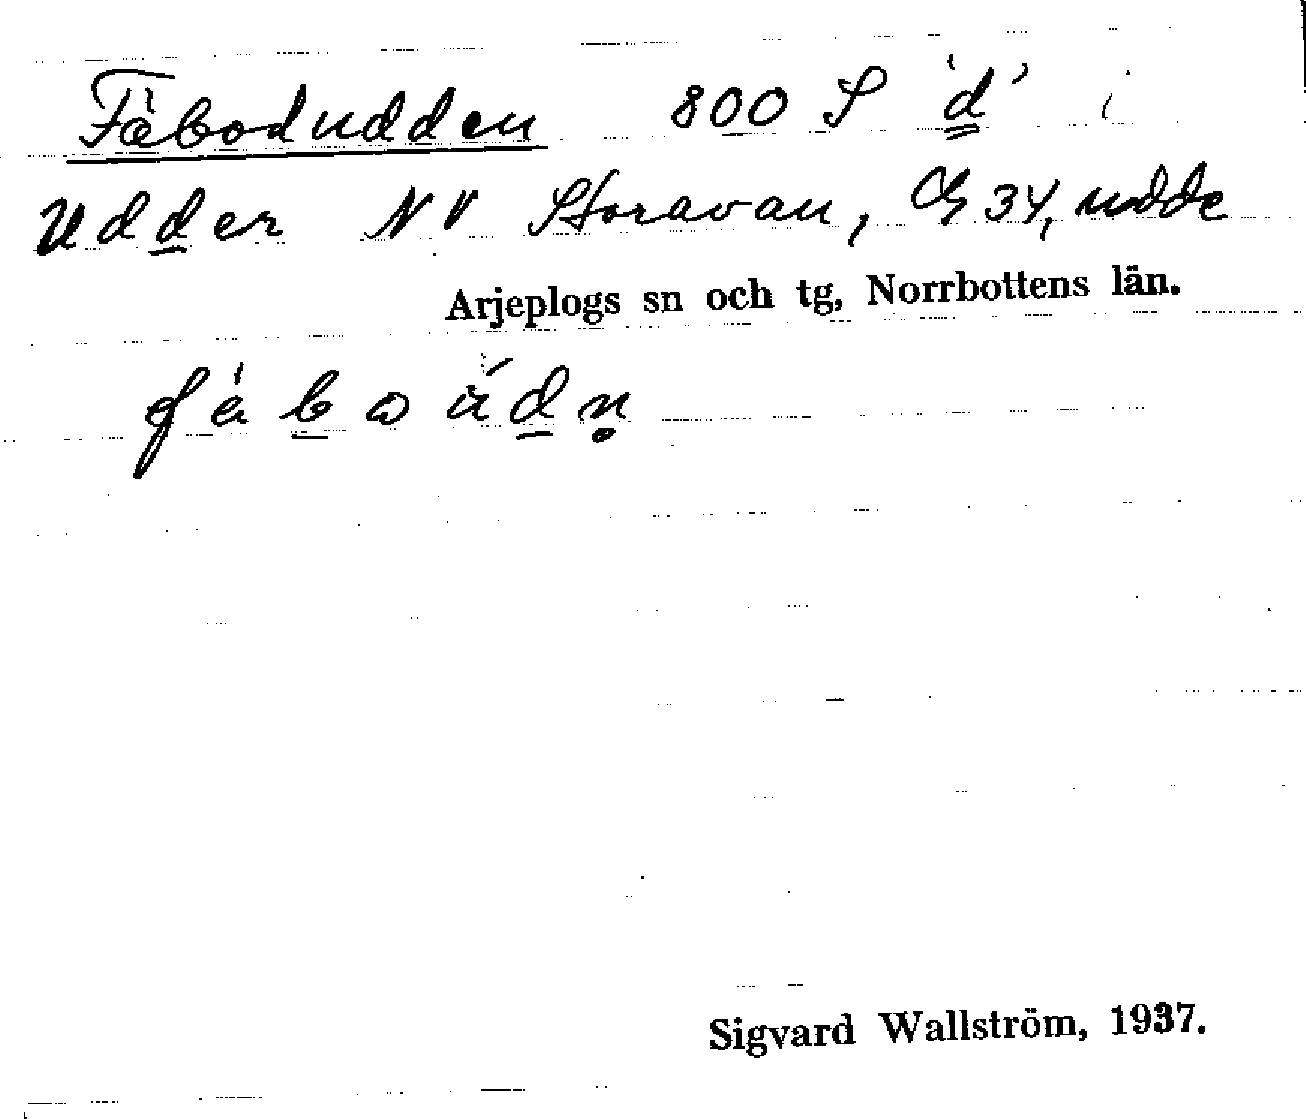 Fäbodudden 800 S 'd' i
Udden NV Storavan, G 34, udde
Arjeplogs sn och tg, Norrbottens län.
Sigvard Wallström, 1937.